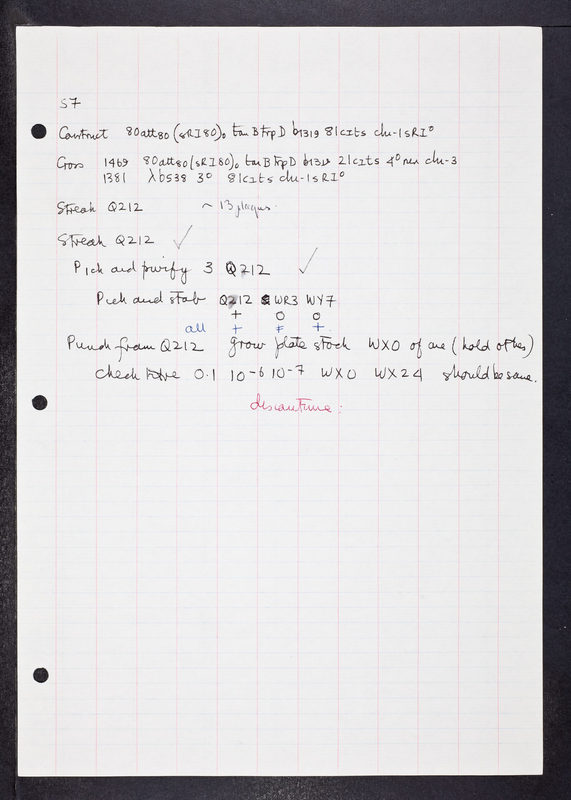 S7
Construct 80att80 (sRI80)₀ ton B trp D b1319 81cIts chi-1 sRI°
Cross 1469 80att80 (sRI80)₀ ton B trp D b1319 21cIts 4° nin chi-3
1381 λb538 3° 81cIts chi-1 sRI°
Streak Q212 ~ 13 plaques.
Streak Q212 ✓
Pick and purify 3 Q212 ✓
Pick and stab Q212 WR3 WY7
+ O O
all + ≠ +.
Punch from Q212 grow plate stock WX0 of one (hold other)
check titre 0.1 10⁻⁶ 10⁻⁷ WX0 WX24 should be same.
discontinue.